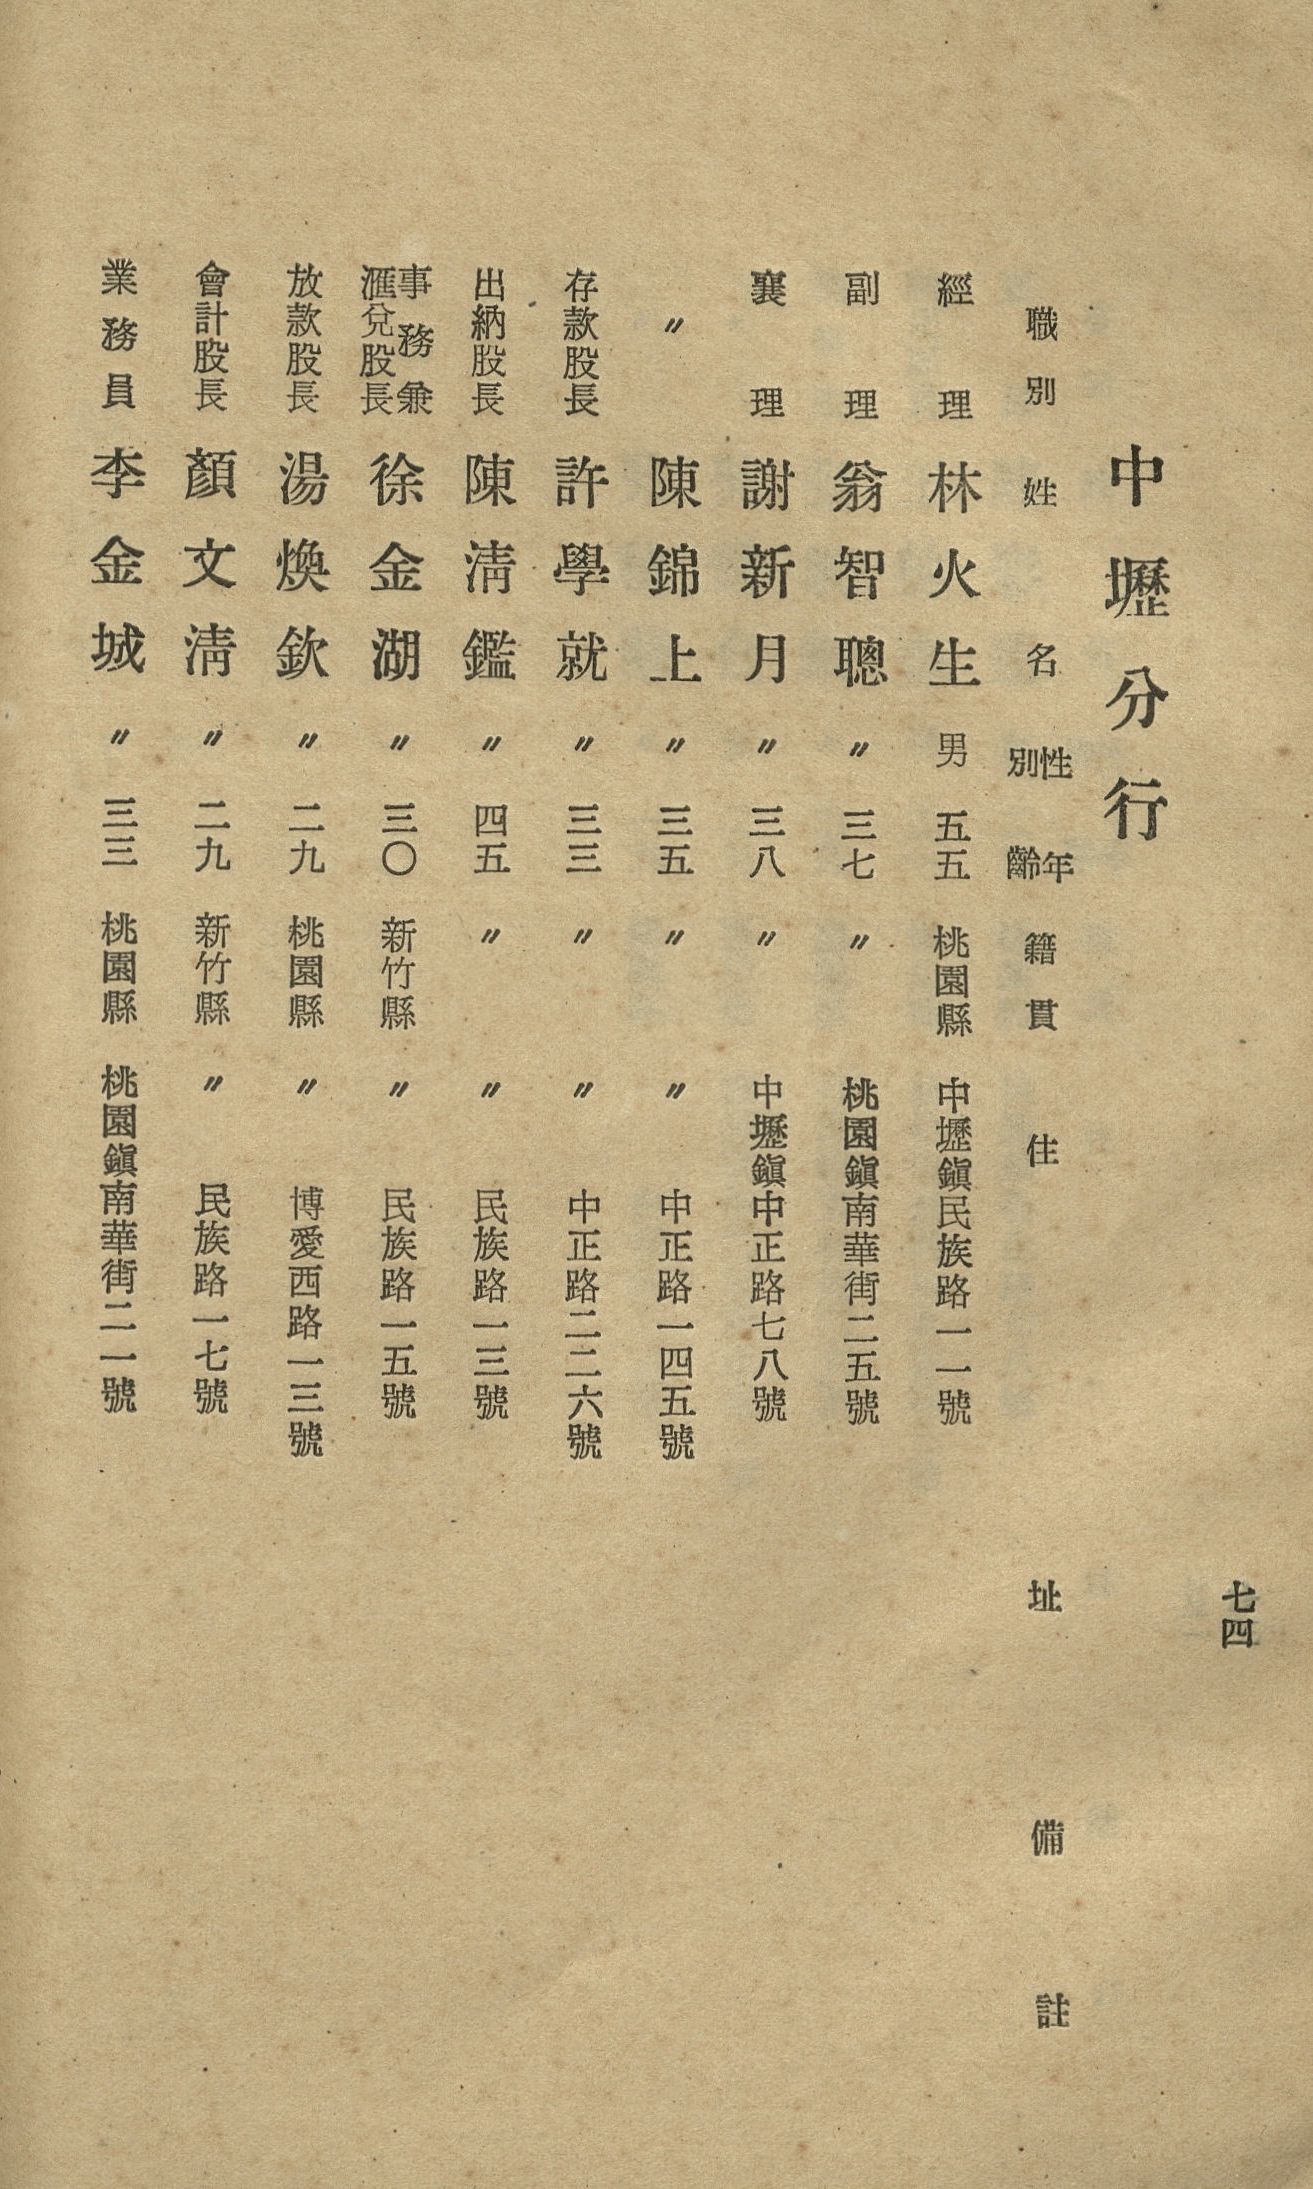 七四
中壢分行
職別 姓名 性別 年齡 籍貫 住址 備註
經理 林火生 男 五五 桃園縣 中壢鎭民族路一一號
副理 翁智聰 〃 三七 〃 桃園鎭南華街二五號
襄理 謝新月 〃 三八 〃 中壢鎭中正路七八號
〃 陳錦上 〃 三五 〃 〃 中正路一四五號
存款股長 許學就 〃 三三 〃 〃 中正路二二六號
出納股長 陳淸鑑 〃 四五 〃 〃 民族路一三號
事務兼滙兌股長 徐金湖 〃 三〇 新竹縣 〃 民族路一五號
放款股長 湯煥欽 〃 二九 桃園縣 〃 博愛西路一三號
會計股長 顏文淸 〃 二九 新竹縣 〃 民族路一七號
業務員 李金城 〃 三三 桃園縣 桃園鎭南華街二一號